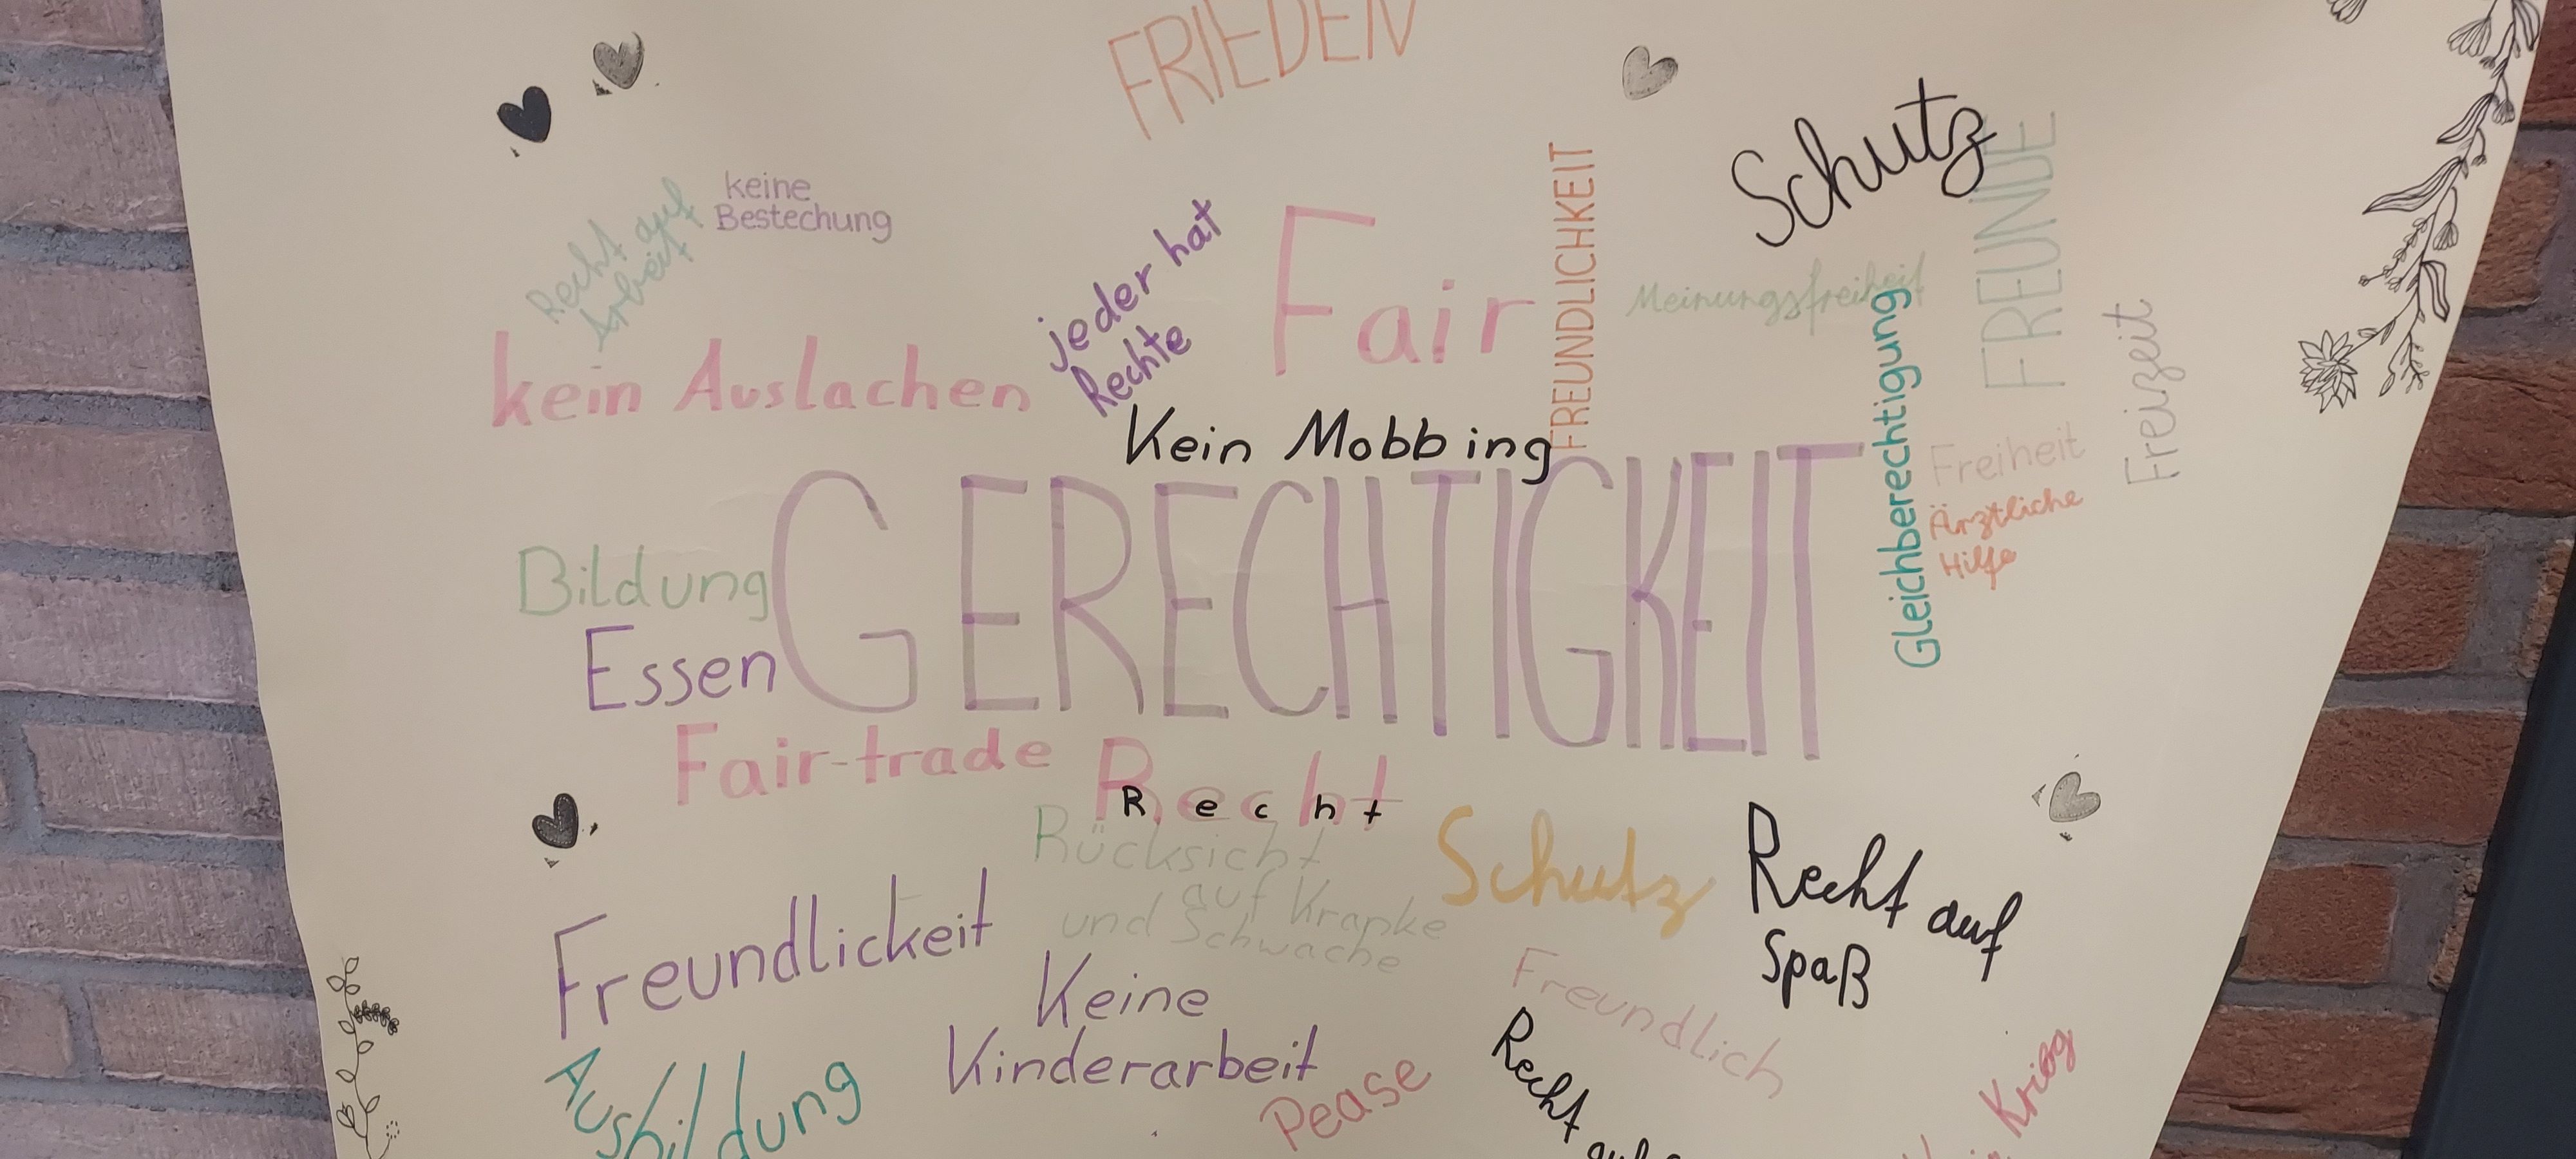 FRIEDEN
Schutz
FREUNDE
keine
Bestechung
Recht auf
Arbeit
jeder hat
Rechte
Fair
FREUNDLICHKEIT
Meinungsfreiheit
Freizeit
kein Auslachen
Kein Mobbing
Gleichberechtigung
Freiheit
Ärztliche
Hilfe
GERECHTIGKEIT
Bildung
Essen
Fair-trade
Recht
Recht
Rücksicht
auf Kranke
und Schwache
Schutz
Recht auf
Spaß
Freundlickeit
Keine
Kinderarbeit
Freundlich
Ausbildung
Pease
Recht
Krieg